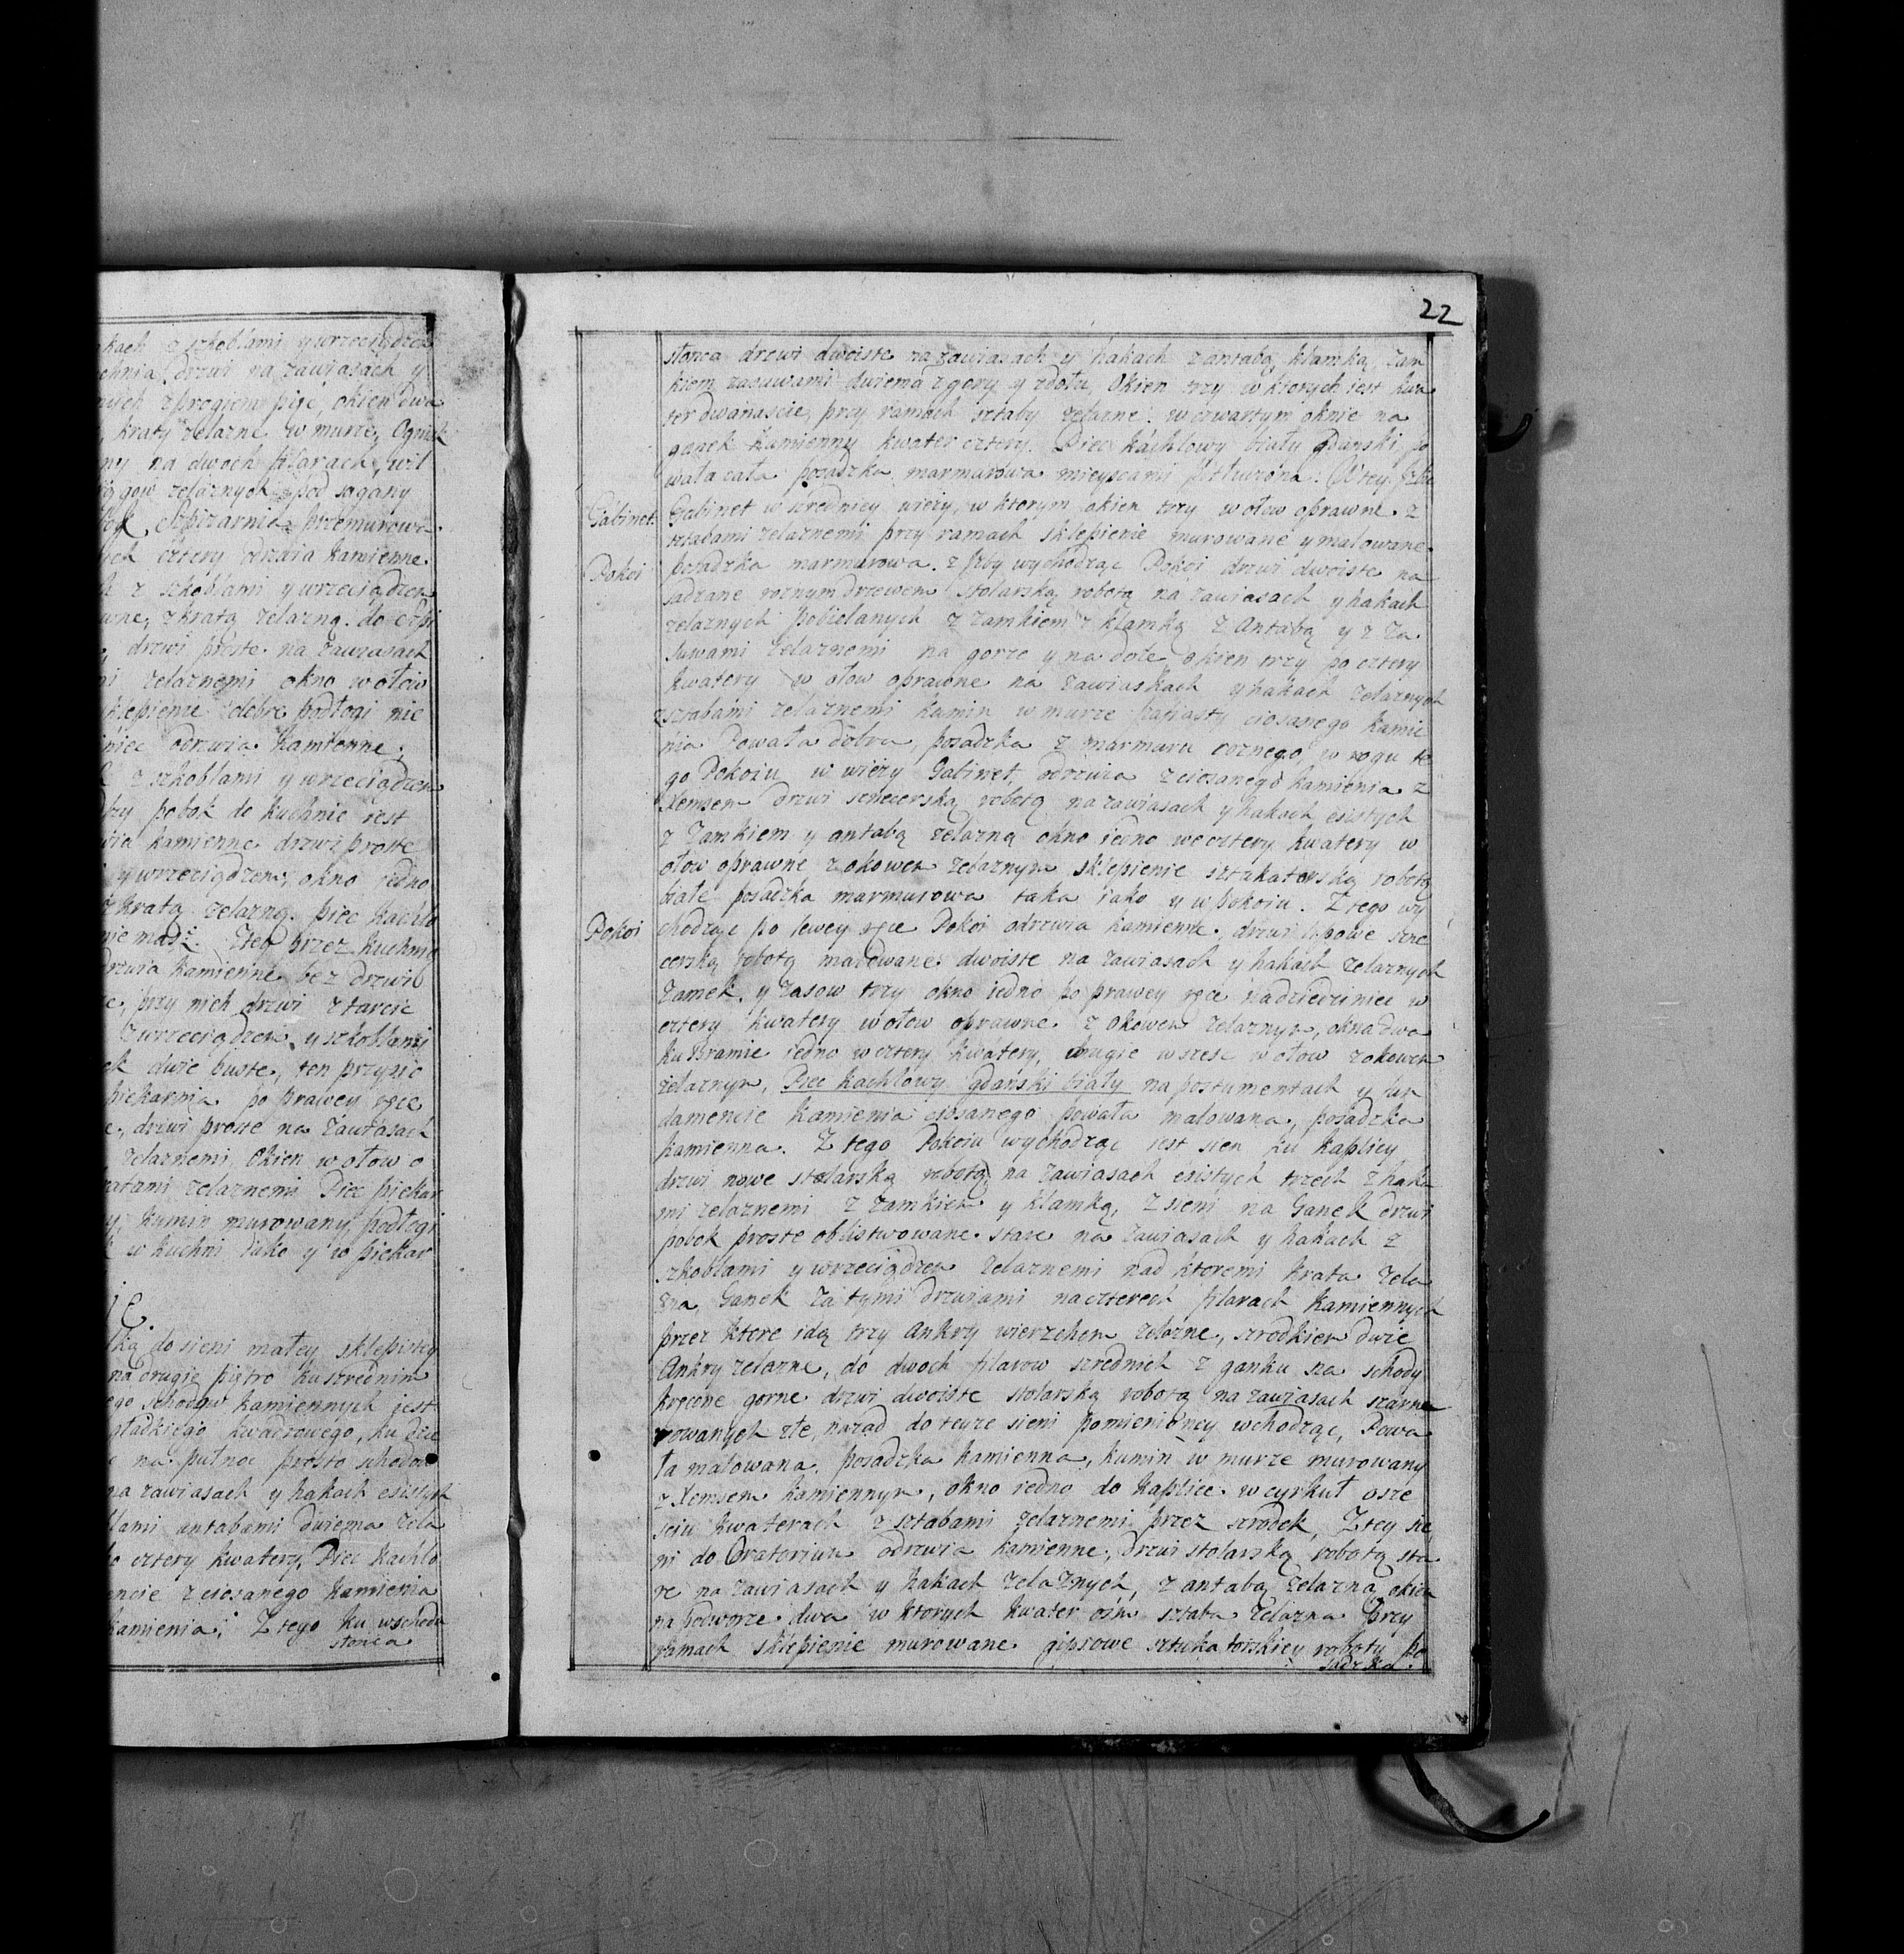 kach z szkoblami y wrzeciądzem
chnia drzwi na zawiasach y
z progiem pięc, okien dwa
kraty zelazne w murze, Ognisk
ny na dwoch filarach, wil
gow zelaznych pod sagany
Szpizarnia przemurowa
ych cztery odrzwia kamienne
z szkoblami y wrzeciądzem
wne, z kratą zelazną. do
drzwi proste na zawiasach
zelaznemi okno w ołow
sklepienie dobre podłogi nie
niec odrzwia kamienne
z szkoblami y wrzeciądzem
pobok do kuchnie iest
wia kamienne drzwi proste
y wrzeciądzem, okno iedno
z kratą zelazną. piec kachlo
nie masz. przez kuchnią
drzwia kamienne bez drzwi
przy nich drzwi z tarcic
z wrzeciądzem y szkoblami
ek dwie puste, ten przy
piekarnia po prawey ręce
drzwi proste na zawiasach
zelaznemi Okien w ołow o
kratami zelaznemi Piec piekar
y, kumin murowany, podłogi
w kuchni iako y w piekar
ką do sieni małey sklepistey
na drugie piętro ku srednim
ego schodow kamiennych iest
gładkiego kwadrowego, ku
na pułnoc prosto schodow
na zawiasach y hakach esistych
blami antabami dwiema zela
o cztery kwatery, Piec kachlo
encie z ciosanego kamienia
kamienia; Z tego ku wschodu
słonca
22
słonca drzwi dwoiste na zawiasach y hakach z antabą, klamką, zam
kiem zasuwami dwiema z gory y zdołu, Okien trzy w ktorych iest kwa
ter dwanascie, przy ramach sztaby zelazne. w czwartym oknie na
ganek kamienny kwater cztery. Piec kachlowy biały gdanski po
wała cała posadzka marmurowa mieyscami
Gabinet.
Gabinet w sredniey wieży, w ktorym okien trzy w ołow oprawne z
sztabami zelaznemi przy ramach sklepienie murowane y malowane.
Pokoi
posadzka marmurowa. z Izby wychodząc Pokoi drzwi dwoiste na
sadzane roznym drzewem stolarską robotą na zawiasach y hakach
zelaznych pobielanych z zamkiem z klamką z Antabą y z za
suwami zelaznemi na gorze y na dole, okien trzy po cztery
kwatery w ołow oprawne na zawiaskach y hakach zelaznych
z sztabami zelaznemi kamin w murze ciosanego kamie
nia Powała dobra, posadzka z marmuru roznego, w rogu te
go Pokoiu w wieży Gabinet odrzwia z ciosanego kamienia z
Xemsem drzwi snicerską robotą na zawiasach y hakach esistych
z zamkiem y antabą zelazną okno iedno we cztery kwatery w
ołow oprawne z okowem zelaznym sklepienie sztukatorską robotą
białe posadzka marmurowa taka iako y w pokoiu. Z tego wy
Pokoi
chodząc po lewey ręce Pokoi odrzwia kamienne, drzwi lipowe sni
cerską robotą malowane dwoiste na zawiasach y hakach zelaznych
zamek, y zasow trzy okno iedno po prawey ręce na dziedziniec w
cztery kwatery w ołow oprawne z okowem zelaznym, okna dwa
ku Bramie iedno w cztery kwatery, drugie w szesc w ołow z okowem
zelaznym, Piec kachlowy gdanski biały na postumentach y fun
damencie kamienia ciosanego powała malowana, posadzka
kamienna. Z tego Pokoiu wychodząc iest sien ku kaplicy
drzwi nowe stolarską robotą na zawiasach esistych trzech z haka
mi zelaznemi z zamkiem y klamką, z sieni na Ganek drzwi
pobok proste oblistwowane stare na zawiasach y hakach z
szkoblami y wrzeciądzem zelaznemi nad ktoremi krata zela
zna, Ganek za tymi drzwiami na czterech filarach kamiennych
przez ktore idą trzy Ankry wierzchem zelazne, szrodkiem dwie
Ankry zelazne, do dwoch filarow srednich z ganku są schody
kręcone gorne drzwi dwoiste stolarską robotą na zawiasach szarnie
rowanych złe, nazad do teyże sieni pomienioney wchodząc, Powa
ła malowana, posadzka kamienna, kumin w murze murowany
z Xemsem kamiennym, okno iedno do kaplice w cyrkuł osze
sciu kwaterach z sztabami zelaznemi przez szrodek, Z tey sie
ni do Oratorium odrzwia kamienne, drzwi stolarską robotą sta
re na zawiasach y hakach zelaznych, z antabą zelazną, okien
na podworze dwa w ktorych kwater osm sztaba zelazna przy
ramach sklepienie murowane gipsowe sztukatorskiey roboty po
sadzka.